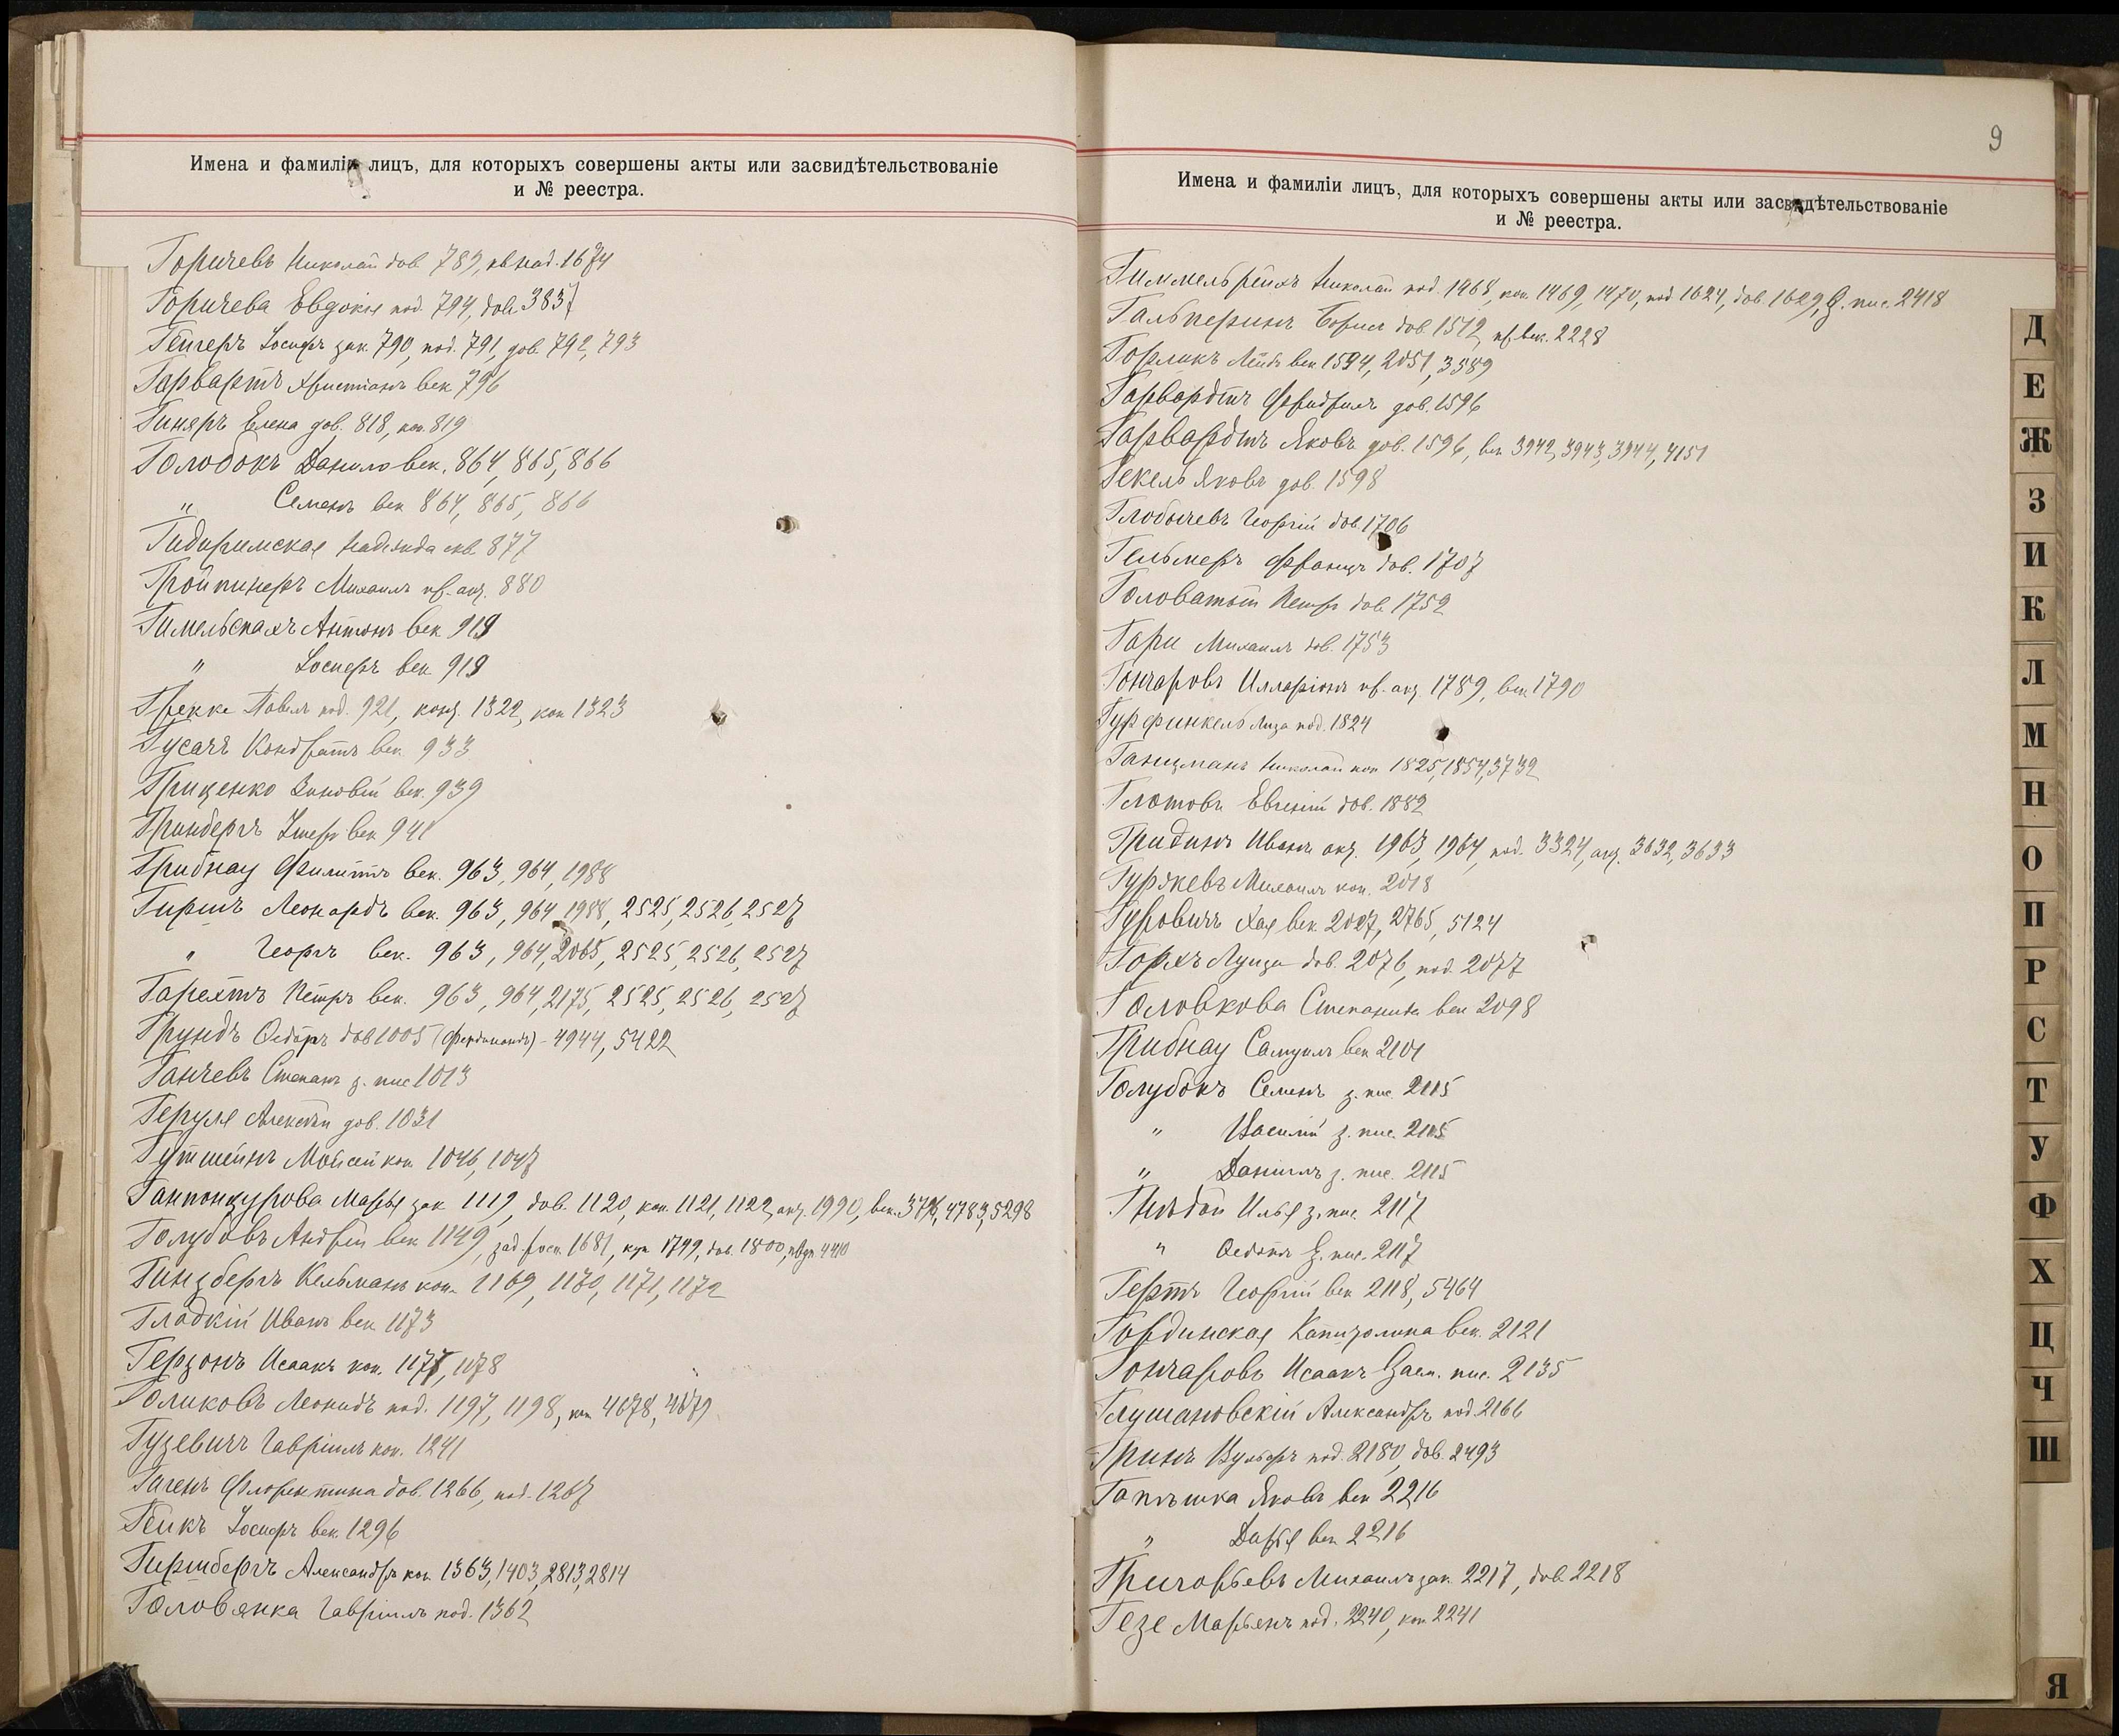 Имена и фамиліи лицъ, для которыхъ совершены акты или засвидѣтельствованіе
и № реестра.
Горичевъ Николай дов. 789, 1674
Горичева Евдокія под. 794, дов. 3837
Гейгеръ Іосифъ зак. 790, под. 791, дов. 792, 793
Гарвартъ Христіанъ век. 796
Гиняръ Елена дов. 818, коп. 819
Голобокъ Данило век. 864, 865, 866
" Семенъ век. 864, 865, 866
Гидиримская Надежда 877
Гройпинеръ Михаилъ 880
Гимельспахъ Антонъ век. 919
" Іосифъ век. 919
Грекке Павелъ под. 921, 1322, коп. 1323
Гусачъ Кондратъ век. 933
Гриценко Зиновій век. 939
Гринбергъ век. 941
Грибнау Филиппъ век. 963, 964, 1988
Гиршъ Леонардъ век. 963, 964, 1988, 2525, 2526, 2527
" Георгъ век. 963, 964, 2065, 2525, 2526, 2527
Гарехтъ Петръ век. 963, 964, 2175, 2525, 2526, 2527
Грундъ Ѳедоръ дов. 1005 (Фердинандъ) - 4944, 5422
Ганчевъ Степанъ з. пис. 1013
Геруля Алексѣй дов. 1031
Гутшейнъ Мойсей коп. 1046, 1047
Марья зак. 1119, дов. 1120, коп. 1121, 1122, 1990, век. 4783, 5298
Голубовъ Андрей век. 1149, 1681, 1799, дов. 1800, 4410
Гинзбергъ Кельманъ коп. 1169, 1170, 1171, 1172
Гладкій Иванъ век. 1173
Герзонъ Исаакъ коп. 1177, 1178
Голиковъ Леонидъ под. 1197, 1198, коп. 4078, 4079
Гузевичъ Гавріилъ коп. 1241
Гагенъ Флорентина дов. 1266, под. 1267
Гейкъ Іосифъ век. 1296
Гиршбергъ Александръ коп. 1363, 1403, 2813, 2814
Головянка Гавріилъ под. 1362
9
Имена и фамиліи лицъ, для которыхъ совершены акты или засвидѣтельствованіе
и № реестра.
Гиммельрейхъ Николай под. 1468, коп. 1469, 1470, под. 1624, дов. 1629, З. пис. 2418
Гальперинъ Борисъ дов. 1512, пр. век. 2228
Горликъ Лейбъ век. 1594, 2051, 3589
Гарвардтъ Фридрихъ дов. 1596
Гарвардтъ Яковъ дов. 1596, век. 3942, 3943, 3944, 4151
Гекель Яковъ дов. 1598
Глобычевъ Георгій дов. 1706
Гельмеръ Францъ дов. 1707
Головатый Петръ дов. 1752
Гари Михаилъ дов. 1753
Гончаровъ Илларіонъ 1789, век. 1790
Гурфинкель Лиза под. 1824
Ганцманъ Николай коп. 1825, 1854, 3732
Глотовъ Евгеній дов. 1882
Гридинъ Иванъ 1963, 1964, под. 3324, 3632, 3633
Гуржевъ Михаилъ коп. 2018
Гуровичъ Хая век. 2027, 2765, 5124
Горхъ Луиза дов. 2076, под. 2077
Головкова Степанида век. 2098
Грибнау Самуилъ век. 2101
Голубокъ Семенъ з. пис. 2115
" Василій з. пис. 2115
" Даніилъ з. пис. 2115
Гнѣдой Илья з. пис. 2117
" З. пис. 2117
Гертъ Георгій век. 2118, 5464
Гординская Капитолина век. 2121
Гончаровъ Исаакъ Заем. пис. 2135
Глушановскій Александръ под. 2166
Гринъ Вульфъ под. 2180, дов. 2493
Яковъ век. 2216
" Дарья век. 2216
Григорьевъ Михаилъ зак. 2217, дов. 2218
Гезе Марьенъ под. 2240, коп. 2241
Д
Е
Ж
З
И
К
Л
М
Н
О
П
Р
С
Т
У
Ф
Х
Ц
Ч
Ш
Я